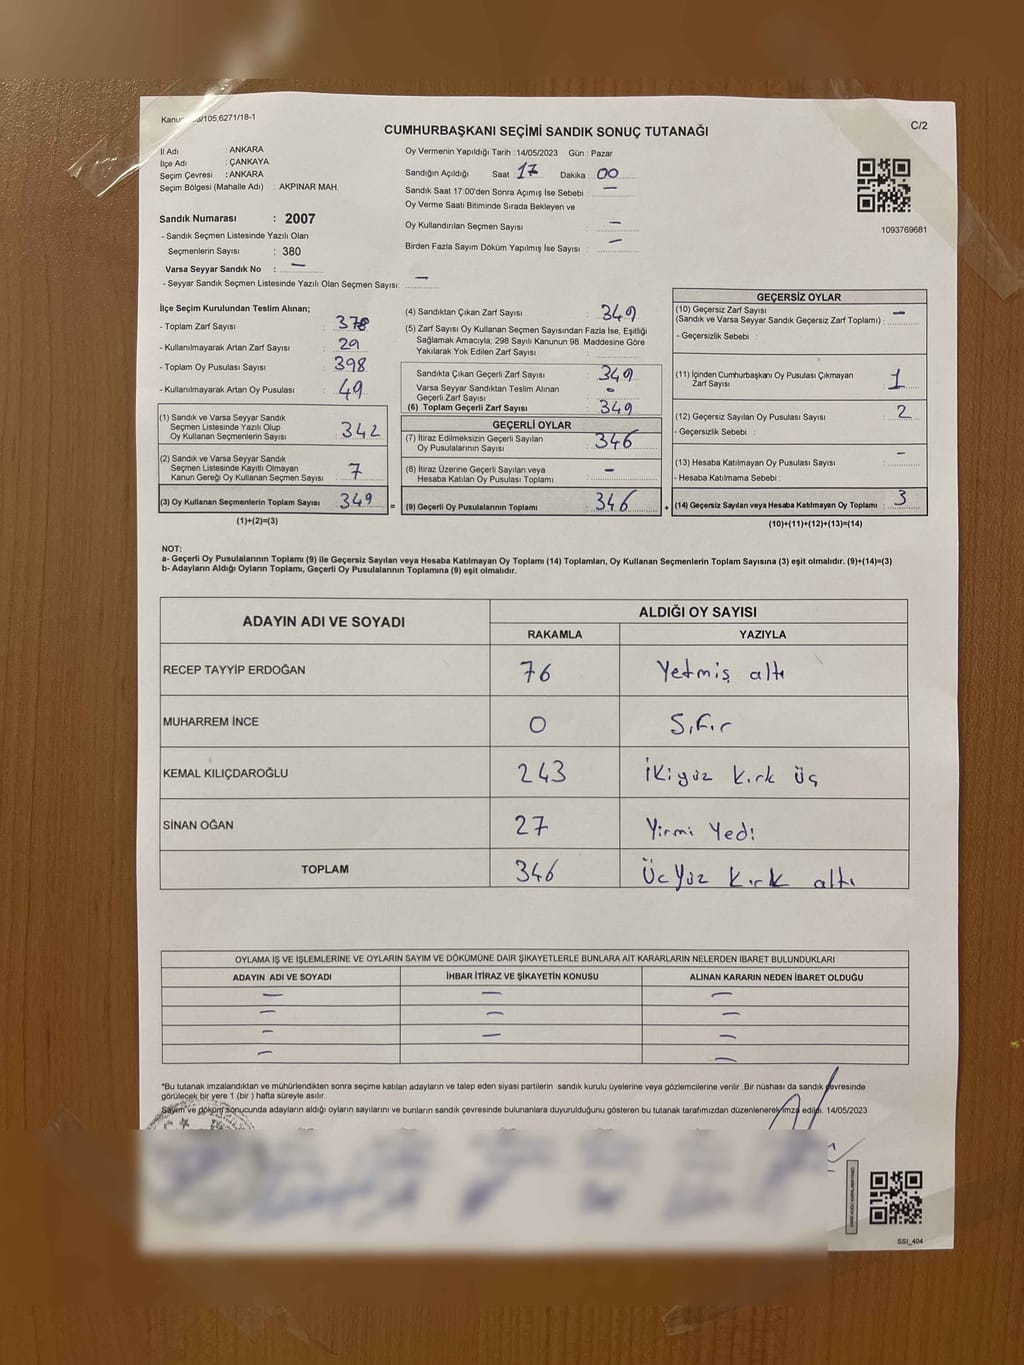 CUMHURBAŞKANI SEÇİMİ SANDIK SONUÇ TUTANAĞI
C/2
İl Adı : ANKARA
İlçe Adı : ÇANKAYA
Seçim Çevresi : ANKARA
Seçim Bölgesi (Mahalle Adı) : AKPINAR MAH.
Sandık Numarası : 2007
- Sandık Seçmen Listesinde Yazılı Olan
Seçmenlerin Sayısı : 380
Varsa Seyyar Sandık No : —
- Seyyar Sandık Seçmen Listesinde Yazılı Olan Seçmen Sayısı: —
Oy Vermenin Yapıldığı Tarih : 14/05/2023 Gün : Pazar
Sandığın Açıldığı Saat : 17 Dakika : 00
Sandık Saat 17:00'den Sonra Açımış İse Sebebi : —
Oy Verme Saati Bitiminde Sırada Bekleyen ve
Oy Kullandırılan Seçmen Sayısı : —
Birden Fazla Sayım Döküm Yapılmış İse Sayısı : —
1093769681
İlçe Seçim Kurulundan Teslim Alınan;
- Toplam Zarf Sayısı : 378
- Kullanılmayarak Artan Zarf Sayısı : 29
- Toplam Oy Pusulası Sayısı : 398
- Kullanılmayarak Artan Oy Pusulası : 49
(1) Sandık ve Varsa Seyyar Sandık
Seçmen Listesinde Yazılı Olup
Oy Kullanan Seçmenlerin Sayısı : 342
(2) Sandık ve Varsa Seyyar Sandık
Seçmen Listesinde Kayıtlı Olmayan
Kanun Gereği Oy Kullanan Seçmen Sayısı : 7
(3) Oy Kullanan Seçmenlerin Toplam Sayısı : 349 =
(1)+(2)=(3)
(4) Sandıktan Çıkan Zarf Sayısı : 349
(5) Zarf Sayısı Oy Kullanan Seçmen Sayısından Fazla İse, Eşitliği
Sağlamak Amacıyla; 298 Sayılı Kanunun 98. Maddesine Göre
Yakılarak Yok Edilen Zarf Sayısı :
Sandıkta Çıkan Geçerli Zarf Sayısı : 349
Varsa Seyyar Sandıktan Teslim Alınan
Geçerli Zarf Sayısı :
(6) Toplam Geçerli Zarf Sayısı : 349
GEÇERLİ OYLAR
(7) İtiraz Edilmeksizin Geçerli Sayılan
Oy Pusulalarının Sayısı : 346
(8) İtiraz Üzerine Geçerli Sayılan veya
Hesaba Katılan Oy Pusulası Toplamı : —
(9) Geçerli Oy Pusulalarının Toplamı : 346 +
GEÇERSİZ OYLAR
(10) Geçersiz Zarf Sayısı
(Sandık ve Varsa Seyyar Sandık Geçersiz Zarf Toplamı) : —
- Geçersizlik Sebebi :
(11) İçinden Cumhurbaşkanı Oy Pusulası Çıkmayan
Zarf Sayısı : 1
(12) Geçersiz Sayılan Oy Pusulası Sayısı : 2
- Geçersizlik Sebebi :
(13) Hesaba Katılmayan Oy Pusulası Sayısı : —
- Hesaba Katılmama Sebebi :
(14) Geçersiz Sayılan veya Hesaba Katılmayan Oy Toplamı : 3
(10)+(11)+(12)+(13)=(14)
NOT:
a- Geçerli Oy Pusulalarının Toplamı (9) ile Geçersiz Sayılan veya Hesaba Katılmayan Oy Toplamı (14) Toplamları, Oy Kullanan Seçmenlerin Toplam Sayısına (3) eşit olmalıdır. (9)+(14)=(3)
b- Adayların Aldığı Oyların Toplamı, Geçerli Oy Pusulalarının Toplamına (9) eşit olmalıdır.
ADAYIN ADI VE SOYADI ALDIĞI OY SAYISI
RAKAMLA YAZIYLA
RECEP TAYYİP ERDOĞAN 76 Yetmiş altı
MUHARREM İNCE 0 Sıfır
KEMAL KILIÇDAROĞLU 243 İkiyüz kırk üç
SİNAN OĞAN 27 Yirmi Yedi
TOPLAM 346 Üçyüz kırk altı
OYLAMA İŞ VE İŞLEMLERİNE VE OYLARIN SAYIM VE DÖKÜMÜNE DAİR ŞİKAYETLERLE BUNLARA AİT KARARLARIN NELERDEN İBARET BULUNDUKLARI
ADAYIN ADI VE SOYADI İHBAR İTİRAZ VE ŞİKAYETİN KONUSU ALINAN KARARIN NEDEN İBARET OLDUĞU
— — —
— — —
— — —
— —
*Bu tutanak imzalandıktan ve mühürlendikten sonra seçime katılan adayların ve talep eden siyasi partilerin sandık kurulu üyelerine veya gözlemcilerine verilir .Bir nüshası da sandık çevresinde
görülecek bir yere 1 (bir ) hafta süreyle asılır.
Sayım ve döküm sonucunda adayların aldığı oyların sayılarını ve bunların sandık çevresinde bulunanlara duyurulduğunu gösteren bu tutanak tarafımızdan düzenlenerek imza edildi. 14/05/2023
SSI_404